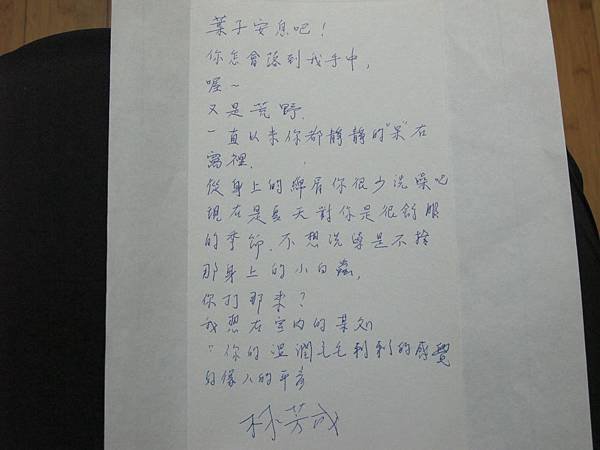 葉子安息吧！
你怎會落到我手中，
喔~
又是荒野.
一直以來你都靜靜的"呆"在
窩裡.
從身上的線屑你很少洗澡吧
現在是夏天對你是很舒服
的季節.不想洗澡是不捨
那身上的小白蟲，
你打那來？
我想在室內的某処
"你的溫潤毛毛刺刺的感覺
的像人的平音
林芳成